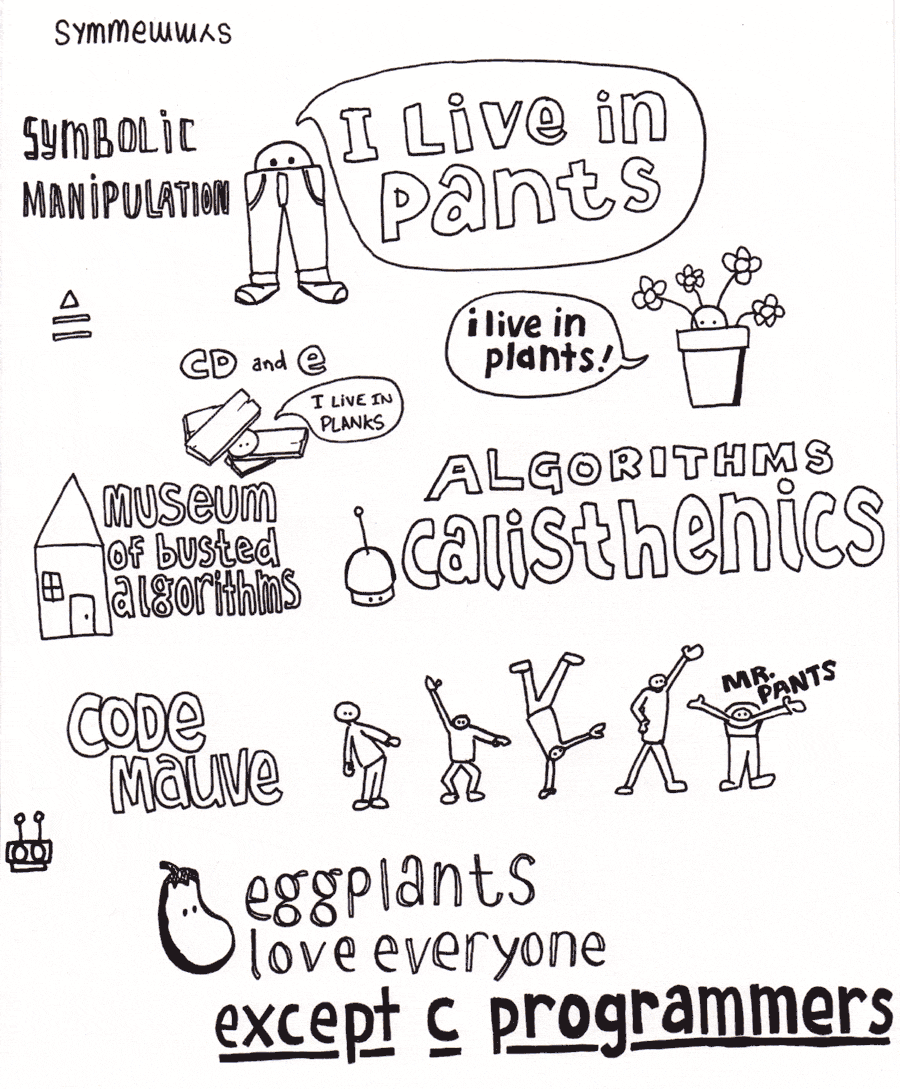 SYMBOLIC
MANIPULATION
I Live in
pants
i live in
plants!
CD and e
I LIVE IN
PLANKS
museum
of busted
algorithms
ALGORITHMS
calisthenics
CODE
mauve
MR.
PANTS
eggplants
love everyone
except c programmers